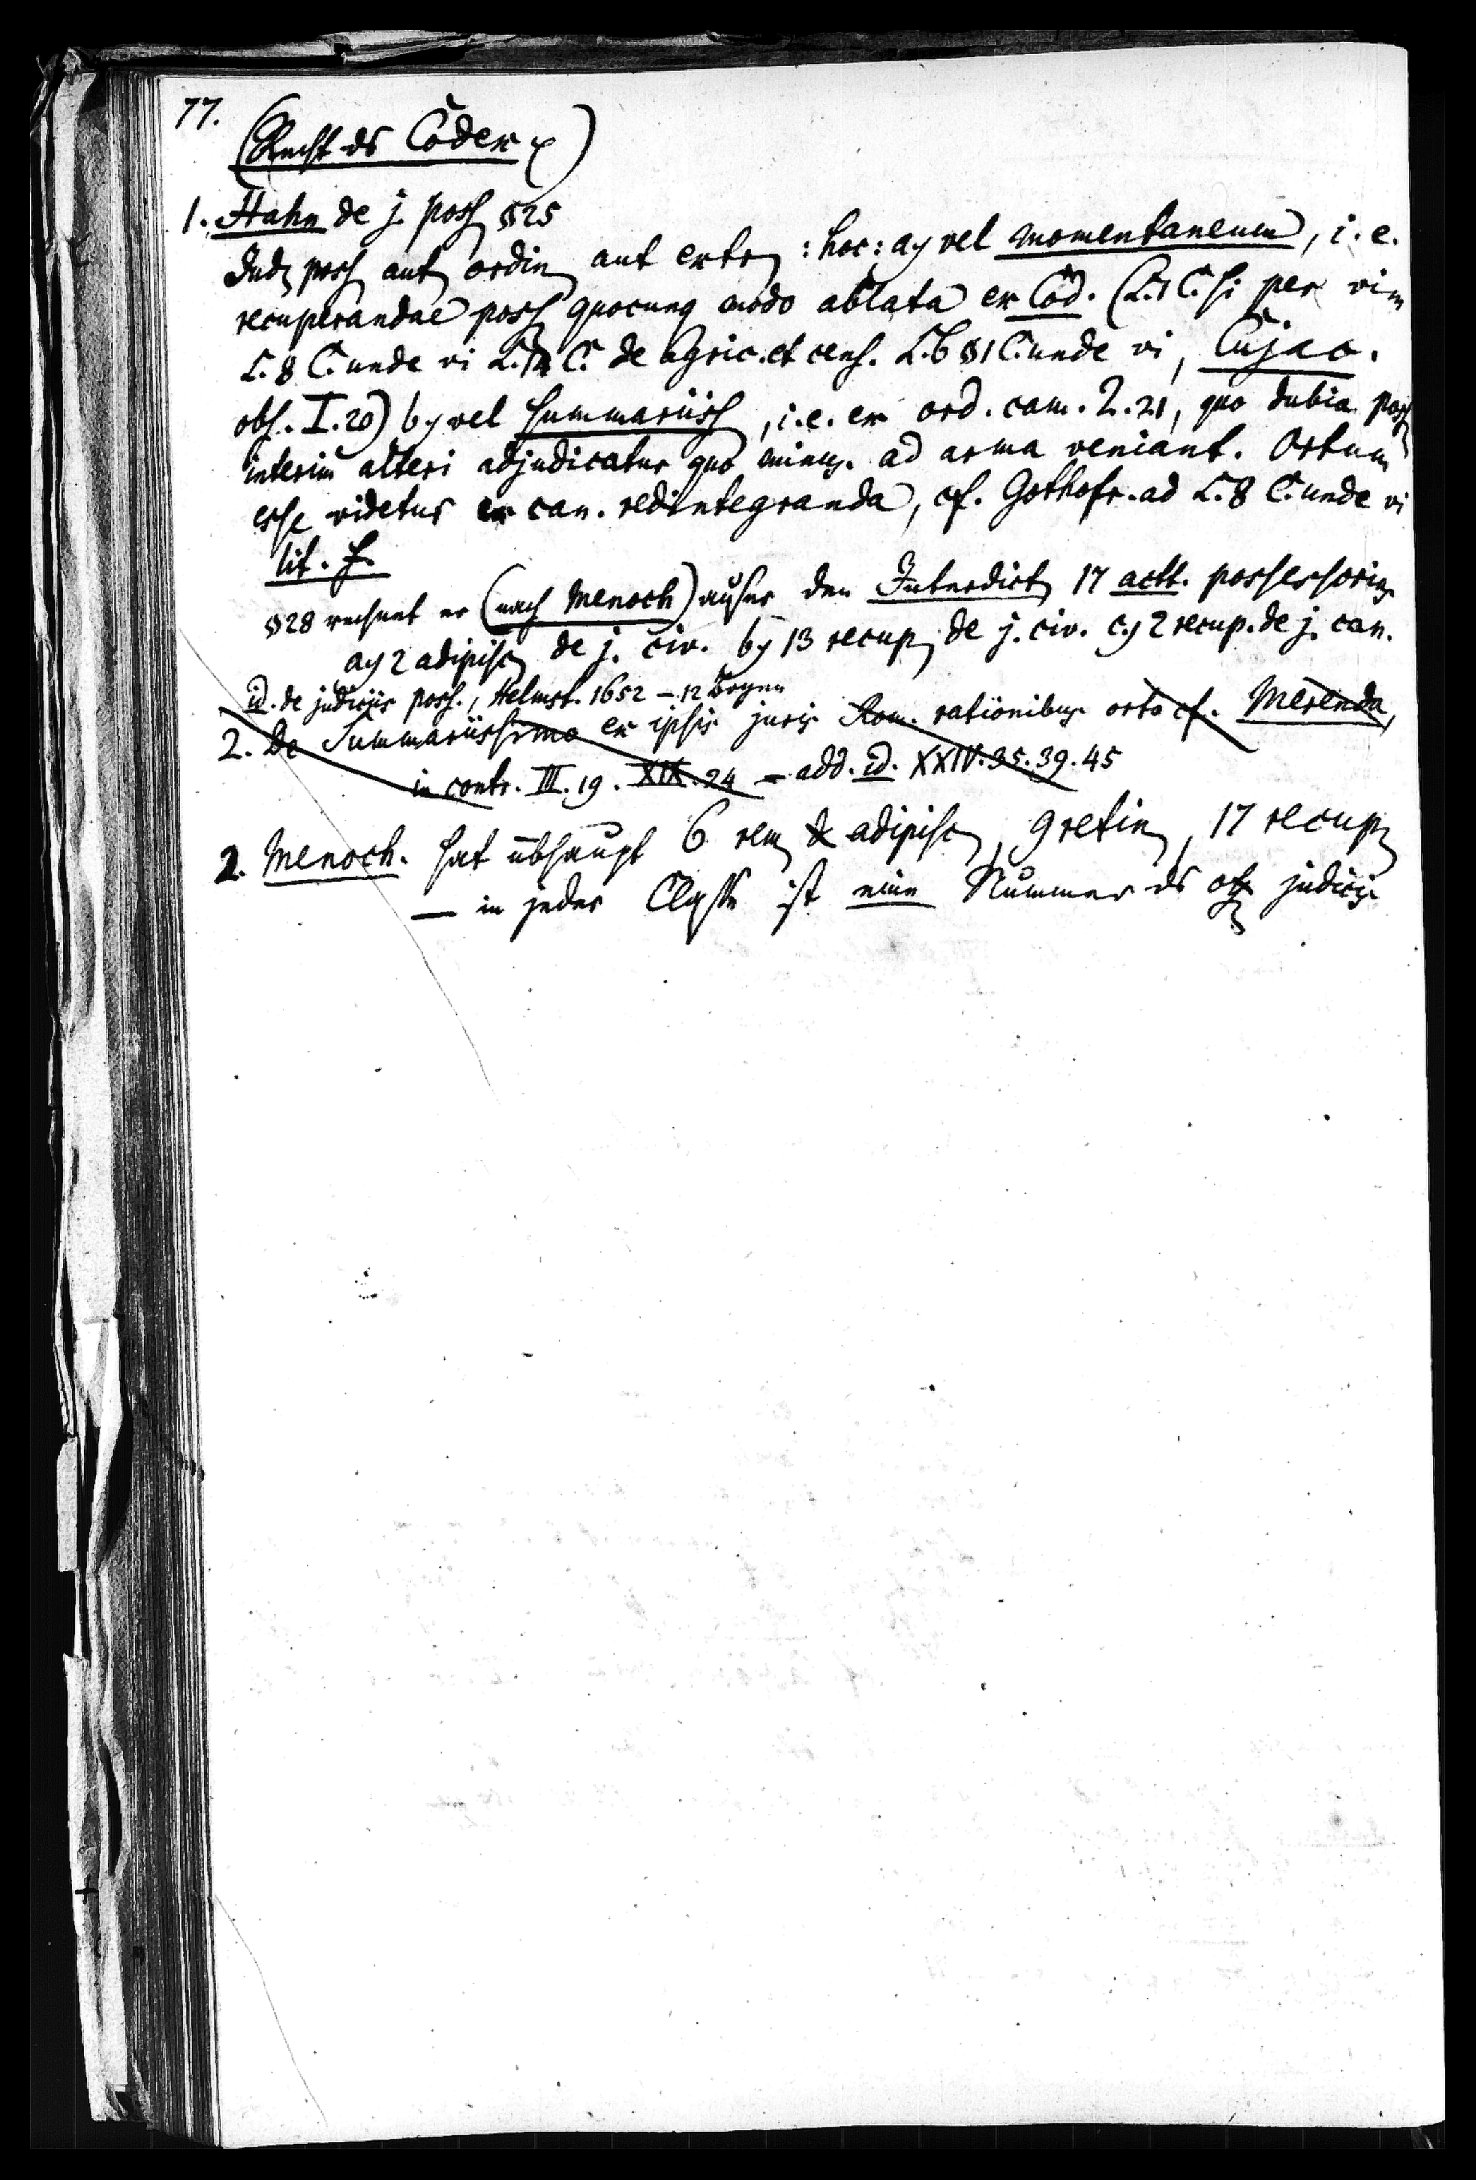 77.
(Recht des Codex)
1. Hahn de j. poss. §25
Jud. poss. aut ordin. aut extr. : hoc: a) vel momentaneum, i.e.
recuperandae poss. quocunq modo ablata ex Cod. (L.1 C. si per vim
L.8 C. unde vi L.14 C. de agric. et cens. L.6 §1 C. unde vi, Cujac.
obs. I.20) b) vel summariiss., i.e. ex ord. cam. 2.21, quo dubia poss.
interim alteri adjudicatur quo minus ad arma veniant. Ortum
esse videtur ex can. redintegranda, cf. Gothofr. ad L.8 C. unde vi
lit. f.
§28 rechnet er (nach Menoch) außer den Interdict 17 act. possessorias
a) 2 adipisc. de j. civ. b) 13 recup. de j. civ. c) 2 recup. de j. can.
id. de judiciis poss., Helmst. 1652 – 12 Bogen
2. De Summariissimo ex ipsis juris Rom. rationibus orto cf. Merenda,
in contr. III.19. XIX.24 – add. id. XXIV.35.39.45
2. Menoch. hat übhaupt 6 rem. adipisc., 9 retin., 17 recup.
– in jeder Classe ist eine Nummer des off. judicis